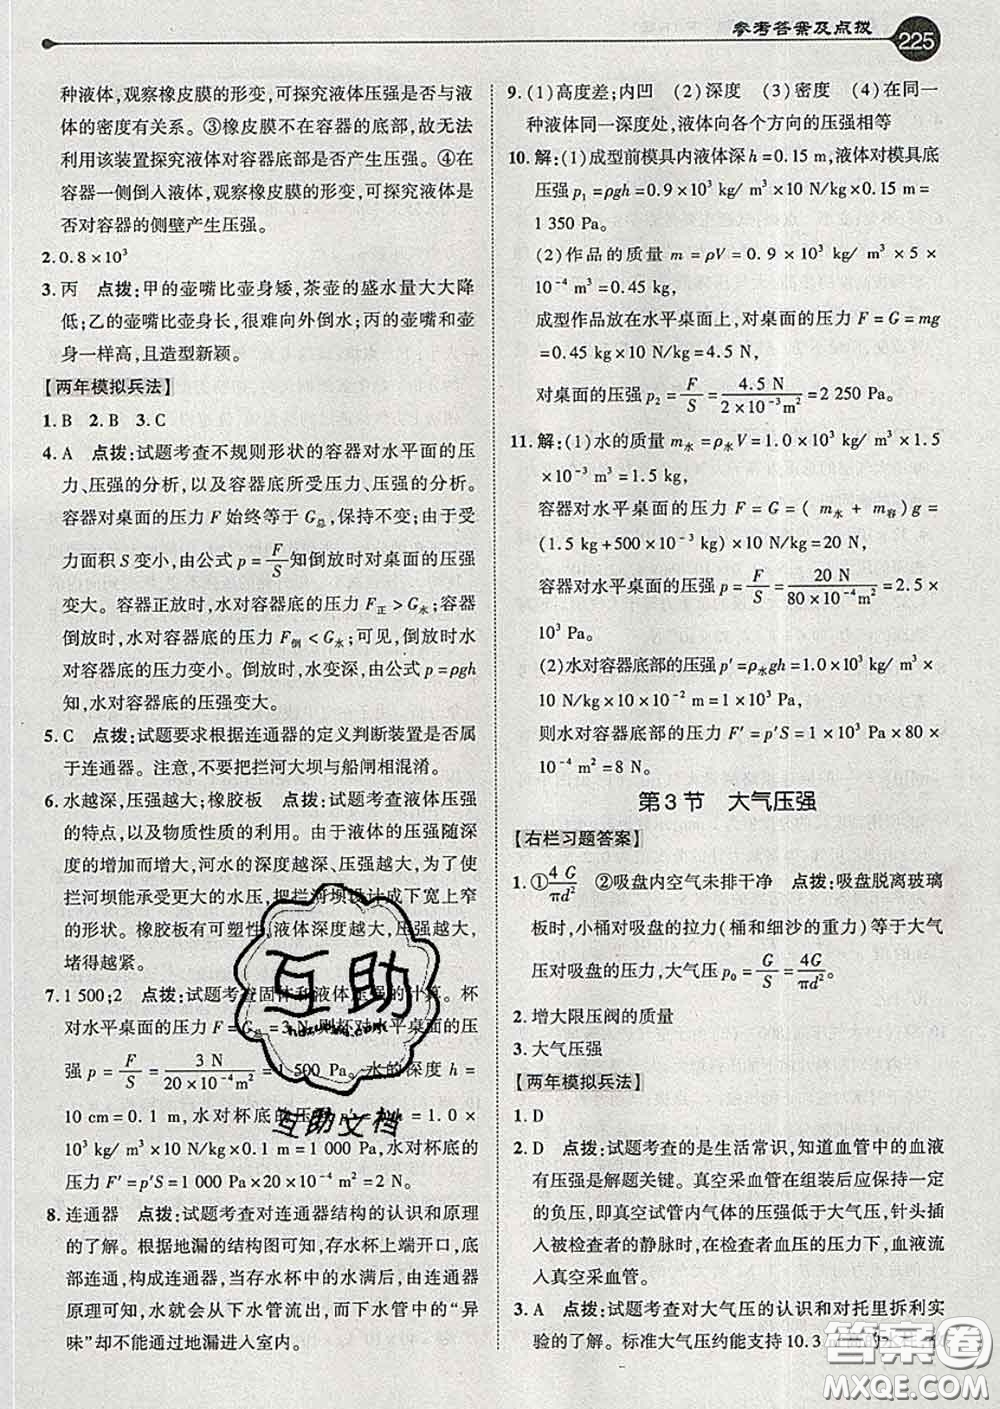 参考答案及点拨
225
种液体,观察橡皮膜的形变,可探究液体压强是否与液
体的密度有关系。③橡皮膜不在容器的底部,故无法
利用该装置探究液体对容器底部是否产生压强。④在
容器一侧倒人液体,观察橡皮膜的形变,可探究液体是
否对容器的侧壁产生压强。
2. 0.8×10³
3. 丙 点拨:甲的壶嘴比壶身矮,茶壶的盛水量大大降
低;乙的壶嘴比壶身长,很难向外倒水;丙的壶嘴和壶
身一样高,且造型新颖。
【两年模拟兵法】
1. B 2. B 3. C
4. A 点拨:试题考查不规则形状的容器对水平面的压
力、压强的分析,以及容器底所受压力、压强的分析。
容器对桌面的压力 F 始终等于 G总,保持不变;由于受
力面积 S 变小,由公式 p = F/S 知倒放时对桌面的压强
变大。容器正放时,水对容器底的压力 F正 > G水;容器
倒放时,水对容器底的压力 F倒 < G水;可见,倒放时水
对容器底的压力变小。倒放时,水变深,由公式 p = ρgh
知,水对容器底的压强变大。
5. C 点拨:试题要求根据连通器的定义判断装置是否属
于连通器。注意,不要把拦河大坝与船闸相混淆。
6. 水越深,压强越大;橡胶板 点拨:试题考查液体压强
的特点,以及物质性质的利用。由于液体的压强随深
度的增加而增大,河水的深度越深、压强越大,为了使
拦河坝能承受更大的水压,把拦河坝设计成下宽上窄
的形状。橡胶板有可塑性,液体深度越大,压强越大,
堵得越紧。
7. 1 500;2 点拨:试题考查固体和液体压强的计算。杯
对水平桌面的压力 F = G总 = 3 N,则杯对水平桌面的压
强 p = F/S = 3 N/(20 × 10⁻⁴ m²) = 1 500 Pa。水的深度 h =
10 cm = 0.1 m,水对杯底的压强 p′ = ρgh = 1.0 ×
10³ kg/ m³ × 10 N/kg × 0.1 m = 1 000 Pa,水对杯底的
压力 F′ = p′S = 1 000 Pa × 20 × 10⁻⁴ m² = 2 N。
8. 连通器 点拨:试题考查对连通器结构的认识和原理
的了解。根据地漏的结构图可知,存水杯上端开口,底
部连通,构成连通器,当存水杯中的水满后,由连通器
原理可知,水就会从下水管流出,而下水管中的“异
味”却不能通过地漏进入室内。
9. (1)高度差;内凹 (2)深度 (3)密度 (4)在同一
种液体同一深度处,液体向各个方向的压强相等
10. 解:(1)成型前模具内液体深 h = 0.15 m,液体对模具底
压强 p₁ = ρgh = 0.9 × 10³ kg/ m³ × 10 N/kg × 0.15 m =
1 350 Pa。
(2)作品的质量 m = ρV = 0.9 × 10³ kg/ m³ × 5 ×
10⁻⁴ m³ = 0.45 kg,
成型作品放在水平桌面上,对桌面的压力 F = G = mg
= 0.45 kg × 10 N/kg = 4.5 N,
对桌面的压强 p₂ = F/S = 4.5 N/(2 × 10⁻³ m²) = 2 250 Pa。
11. 解:(1)水的质量 m水 = ρ水V = 1.0 × 10³ kg/ m³ × 1.5
× 10⁻³ m³ = 1.5 kg,
容器对水平桌面的压力 F = G = ( m水 + m容)g =
(1.5 kg + 500 × 10⁻³ kg) × 10 N/kg = 20 N,
容器对水平桌面的压强 p = F/S = 20 N/(80 × 10⁻⁴ m²) = 2.5 ×
10³ Pa;
(2)水对容器底部的压强 p′ = ρ水gh = 1.0 × 10³ kg/ m³ ×
10 N/kg × 10 × 10⁻² m = 1 × 10³ Pa,
则水对容器底部的压力 F′ = p′S = 1 × 10³ Pa × 80 ×
10⁻⁴ m² = 8 N。
第 3 节 大气压强
【右栏习题答案】
1. ①4 G/πd² ②吸盘内空气未排干净 点拨:吸盘脱离玻璃
板时,小桶对吸盘的拉力(桶和细沙的重力)等于大气
压对吸盘的压力,大气压 p₀ = G/S = 4G/πd²。
2. 增大限压阀的质量
3. 大气压强
【两年模拟兵法】
1. D
2. D 点拨:试题考查的是生活常识,知道血管中的血液
有压强是解题关键。真空采血管在使用时导入一定的
负压,即真空试管内气体的压强低于大气压,针头插入
被检查者的静脉时,在被检查者血压的压力下,血液流
入真空采血管。
3. A 点拨:试题考查对大气压的认识和对托里拆利实
验的了解。标准大气压约能支持 10.3
互助
hdzuoye.com
互助文档
答案圈
MXQE.COM